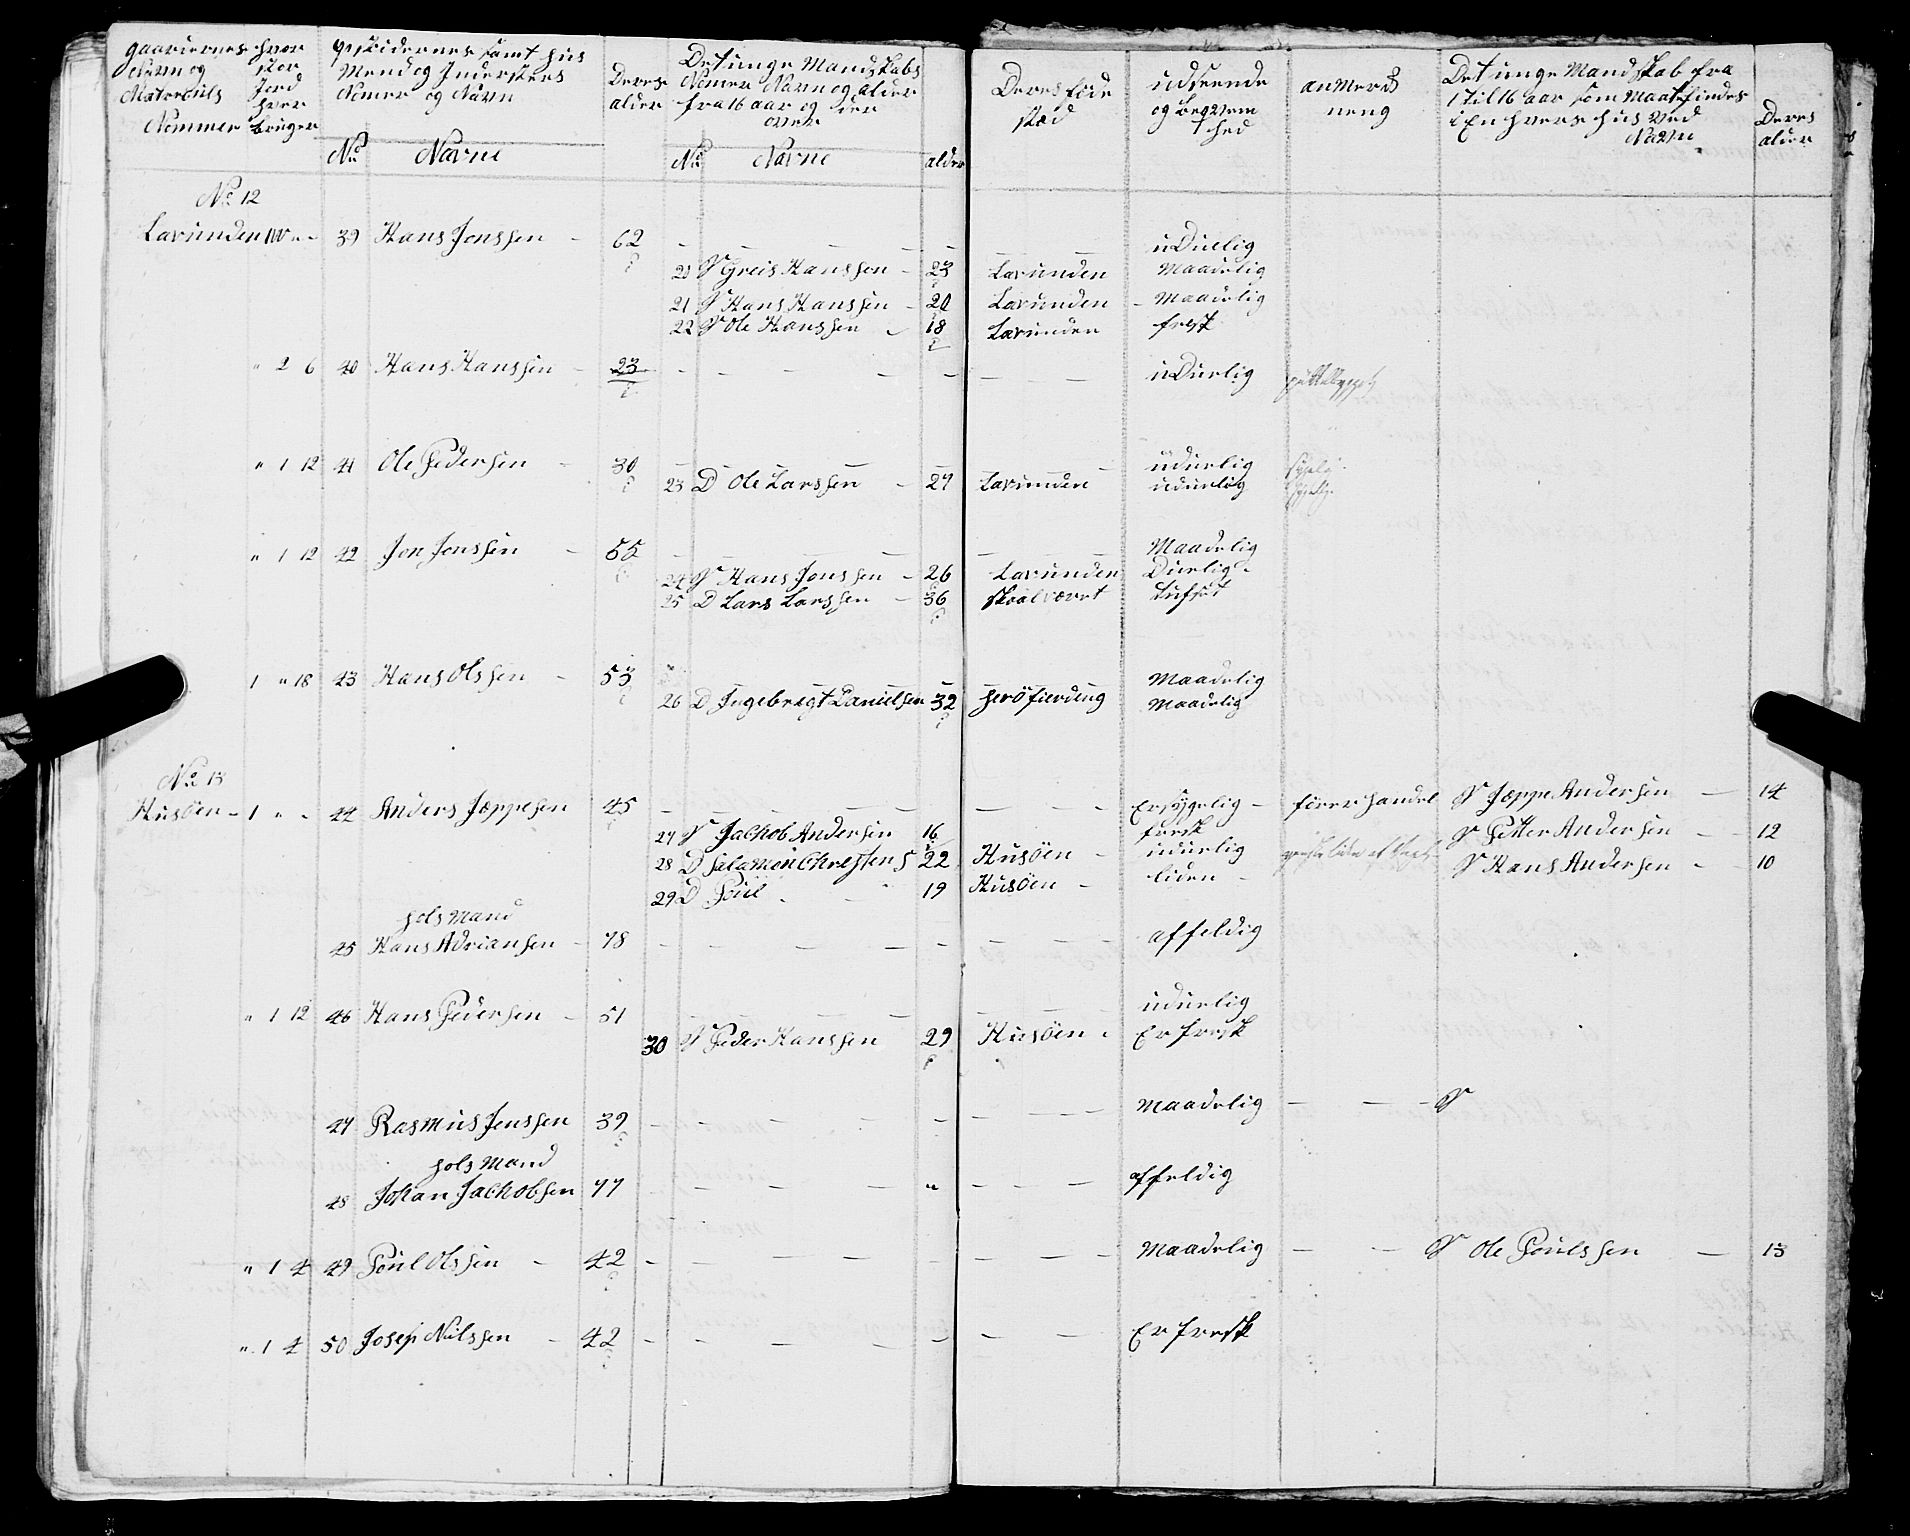 gaardernes hvor
Navn og stor
Matereuls Jord
hver
Nommer bruger
opsidernes samt hus
Mend og Indersters
Nomer og Navn
Deres
alder
Det unge Mandskabs
Nomer Navn og alder
fra 16 aar og der
over
Deres føde
stæd
udseende
og beqvem
hed
anMerk
neng
Det unge Mandskab fra
1 til 16 aar som Maate findes
i En hvers hus ved
Navn
Deres
alder
No Navne No Navne alder
No 12
Lavunden 39 Hans Jonssen - 62 - - - - uDuelig
20 S Greis Hanssen - 23 Lavunden Maadelig
21 S Hans Hanssen - 20 Lavunden - Maadelig
22 S Ole Hanssen - 18 Lavunden fresk
" 2 6 40 Hans Hanssen - 23 - - - - uDuelig
" 1 12 41 Ole Pedersen - 30 - - - - uduelig
23 D Ole Larssen - 27 Lavunden uduelig
" 1 12 42 Jon Jonssen - 55 - - - - Maadelig
24 S Hans Jonssen - 26 Lavunden Duelig -
25 D Lars Larssen - 36 skoalværet
1 " 18 43 Hans Olssen - 53 - - - - Maadelig
26 D Ingebregt Danielsen 32 herøfierdeng Maadelig
No 13
Husöen - 1 " - 44 Anders Jæppesen 45 - - - - Er sygelig - förer handel S Jæppe Andersen - 14
27 S Jachob Andersen 16 fersk S Petter Andersen - 12
28 D Salamon Chrestens 22 Husöen - uduelig S Hans Andersen - 10
29 D Poul - - 19 Husöen - liden -
hols Mand
45 Hans Adriansen - 78 - - - - affeldig
" 1 12 46 Hans Pedersen - 51 - - - - uduelig
30 S Peder Hanssen 29 Husöen - Er fresk
47 Rasmus Jenssen 39 - - - - Maadelig - - S
hols Mand
48 Johan Jachobsen 77 - - - - affeldig
" 1 4 49 Poul Olssen - 42 - - - - Maadelig - - S Ole Poulssen - 13
" 1 4 50 Josep Nilssen - 42 - - - - Er fresk